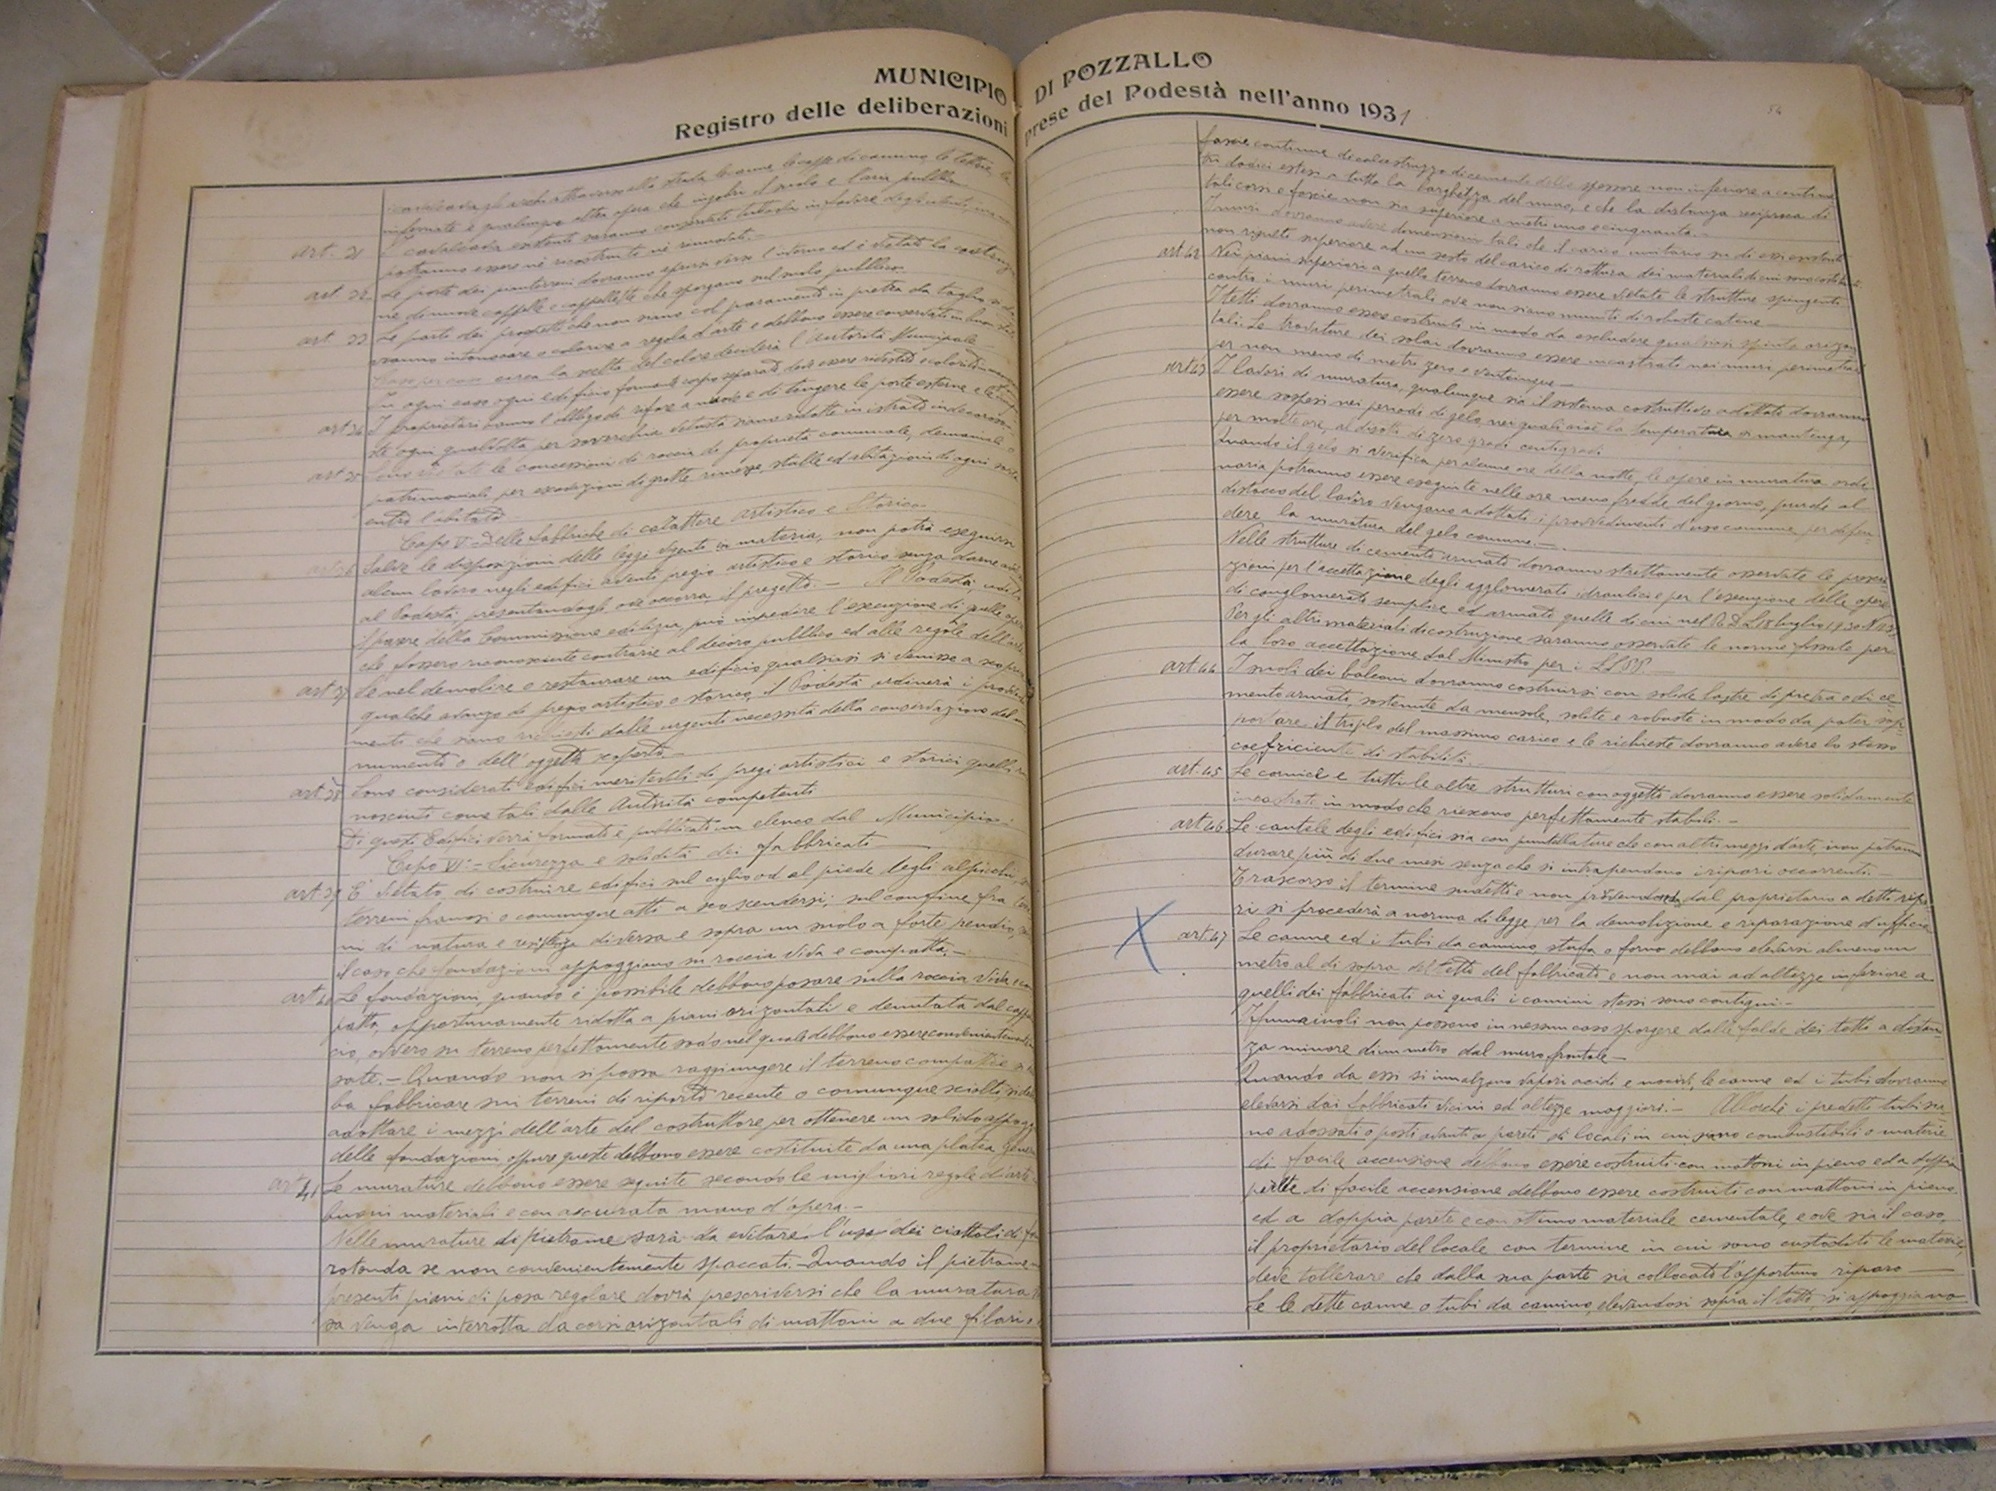 MUNICIPIO DI POZZALLO
Registro delle deliberazioni prese del Podestà nell'anno 1931
54
infernate e qualunque altra opera che ingombri il suolo e l'area pubblica
art. 21 I cavalcavia esistenti saranno conservati tuttavia in favore degli utenti, ma non
potranno essere nè ricostruiti nè rinnovati. —
art. 22 Le porte dei pianterreni dovranno aprirsi verso l'interno ed è vietata la costruzio
ne di nuove cappelle e cappellette che sporgano sul suolo pubblico.
art. 23 Le parti dei prospetti che non siano col paramenti in pietra da taglio si do
vranno intonacare e colorire a regola d'arte e debbono essere conservati in buono stato
Caso per caso circa la scelta del colore deciderà l'Autorità Municipale
In ogni caso ogni edificio formante corpo separato deve essere rivestito e colorito
art 24 I proprietari hanno l'obbligo di rifare a nuovo e di tingere le porte esterne e le
ste ogni qualvolta per soverchia vetustà siano ridotte in istato indecoroso
art 25 Sono vietate le concessioni di roccia di proprietà comunale, demaniale o
patrimoniali per escavazioni di grotte rimesse, stalle ed abitazioni di ogni sorta
entro l'abitato
Capo V - Delle fabbriche di carattere artistico e storico
Salve le disposizioni delle leggi vigenti in materia, non potrà eseguirsi
alcun lavoro negli edifici aventi pregio artistico e storico senza darne avviso
al Podestà, presentandogli ove occorra, il progetto. — Il Podestà, udito
il parere della Commissione edilizia, può impedire l'esecuzione di quelle opere
che fossero riconosciute contrarie al decoro pubblico ed alle regole dell'arte
art 27 Se nel demolire o restaurare un edificio qualsiasi si venisse a scoprire
qualche avanzo di pregio artistico o storico, il Podestà ordinerà i provvedi
menti che siano richiesti dalle urgenti necessità della conservazione del mo
numento o dell'oggetto scoperto —
art. 38 Sono considerati edifici meritevoli di pregi artistici e storici quelli ri
nosciuti come tali dalle Autorità competenti
Di questi Edifici verrà formato e pubblicato un elenco dal Municipio. —
Capo VI - Sicurezza e solidità dei fabbricati
art. 39 E' vietato di costruire edifici sul ciglio od al piede degli appicchi, su
terreni franosi o comunque atti a scoscendersi, sul confine fra terre
ni di natura e resistenza diversa e sopra un suolo a forte pendio, salvo
il caso che fondazioni appoggiano su roccia viva e compatta. —
art 40 Le fondazioni, quando è possibile debbono posare sulla roccia viva e com
patta, opportunamente ridotta a piani orizontali e denudata dal cappel
cio, ovvero su terreno perfettamente sodo nel quale debbono essere convenientemente
sate. — Quando non si possa raggiungere il terreno compatto e si
ba fabbricare sui terreni di riporto recente o comunque sciolti si deb
adottare i mezzi dell'arte del costruttore per ottenere un solido appoggio
delle fondazioni, oppure queste debbono essere costituite da una platea generale
art 41 Le murature debbono essere seguite secondo le migliori regole d'arte
buoni materiali e con accurata mano d'opera. —
Nelle murature di pietrame sarà da evitare l'uso dei ciottoli di forma
rotonda se non convenientemente spaccati. — Quando il pietrame
presenti piani di posa regolare dovrà prescriversi che la muratura
sa venga interrotta da corsi orizontali di mattoni a due filari o
fascie continue di calcestruzzo di cemento dello spessore non inferiore a centime
tri dodici estesi a tutta la larghezza del muro, e che la distanza reciproca di
tali corsi e fascie non sia superiore a metri uno e cinquanta. —
I muri dovranno avere dimensioni tali che il carico unitario su di essi insistente
non risulti superiore ad un sesto del carico di rottura dei materiali di cui sono costituiti
art 42 Nei piani superiori a quello terreno dovranno essere vietate le strutture spingenti
contro i muri perimetrali ove non siano muniti di robuste catene
I tetti dovranno essere costruiti in modo da escludere qualsiasi spinta orizon
tale. Le travature dei solai dovranno essere incastrate nei muri perimetrali
per non meno di metri zero e venticinque —
art 43 I lavori di muratura, qualunque sia il sistema costruttivo adottato dovranno
essere sospesi nei periodi di gelo, nei quali cioè la temperatura si mantenga,
per molte ore, al disotto di zero gradi centigradi
Quando il gelo si verifica per alcune ore della notte, le opere in muratura ordi
naria potranno essere eseguite nelle ore meno fredde del giorno, purchè al
distacco del lavoro vengano adottati i provvedimenti d'uso comune per difen
dere la muratura dal gelo comune. —
Nelle strutture di cemento armato dovranno strettamente osservate le prescri
zioni per l'accettazione degli agglomerati idraulici e per l'esecuzione delle opere
di conglomerato semplice ed armato quelle di cui nel R.D.L. 18 luglio 1930 N 1133
Per gli altri materiali di costruzione saranno osservate le norme fissate per
la loro accettazione dal Ministro per i LL.PP
art 44 I suoli dei balconi dovranno costruirsi con solide lastre di pietra o di ce
mento armato, sostenute da mensole, solite e robuste in modo da poter sop
portare il triplo del massimo carico e le richieste dovranno avere lo stesso
coefficiente di stabilità. —
art. 45 Le cornice e tutte le altre strutture con oggetti dovranno essere solidamente
incastrate in modo che riescono perfettamente stabili. —
art 46 Le cautele degli edifici sia con puntellature che con altri mezzi d'arte, non potranno
durare più di due mesi senza che si intraprendono i ripari occorrenti. —
Trascorso il termine sudetto e non provvedendo dal proprietario a detti ripa
ri si procederà a norma di legge per la demolizione e riparazione d'ufficio
art. 47 Le canne ed i tubi da camino, stufa o forno debbono elevarsi almeno un
metro al di sopra del tetto del fabbricato e non mai ad altezze inferiore a
quelli dei fabbricati ai quali i camini stessi sono contigui. —
I fumaiuoli non possono in nessun caso sporgere dalle falde dei tetti a distan
za minore di un metro dal muro frontale —
Quando da essi si innalzano vapori acidi e nocivi, le canne ed i tubi dovranno
elevarsi dai fabbricati vicini ed altezze maggiori. — Allorchè i predetti tubi sia
no adossati o posti avanti a pareti di locali in cui siano combustibili o materie
di facile accensione debbono essere costruiti con mattoni in pieno ed a doppia
parete di facile accensione debbono essere costruiti con mattoni in pieno
ed a doppia parete e con ottimo materiale cementale, e ove sia il caso,
il proprietario del locale con termine in cui sono custodite le materie,
deve tollerare che dalla sua parte sia collocato l'opportuno riparo —
Se le dette canne o tubi da camino, elevandosi sopra il tetto, si appoggiano